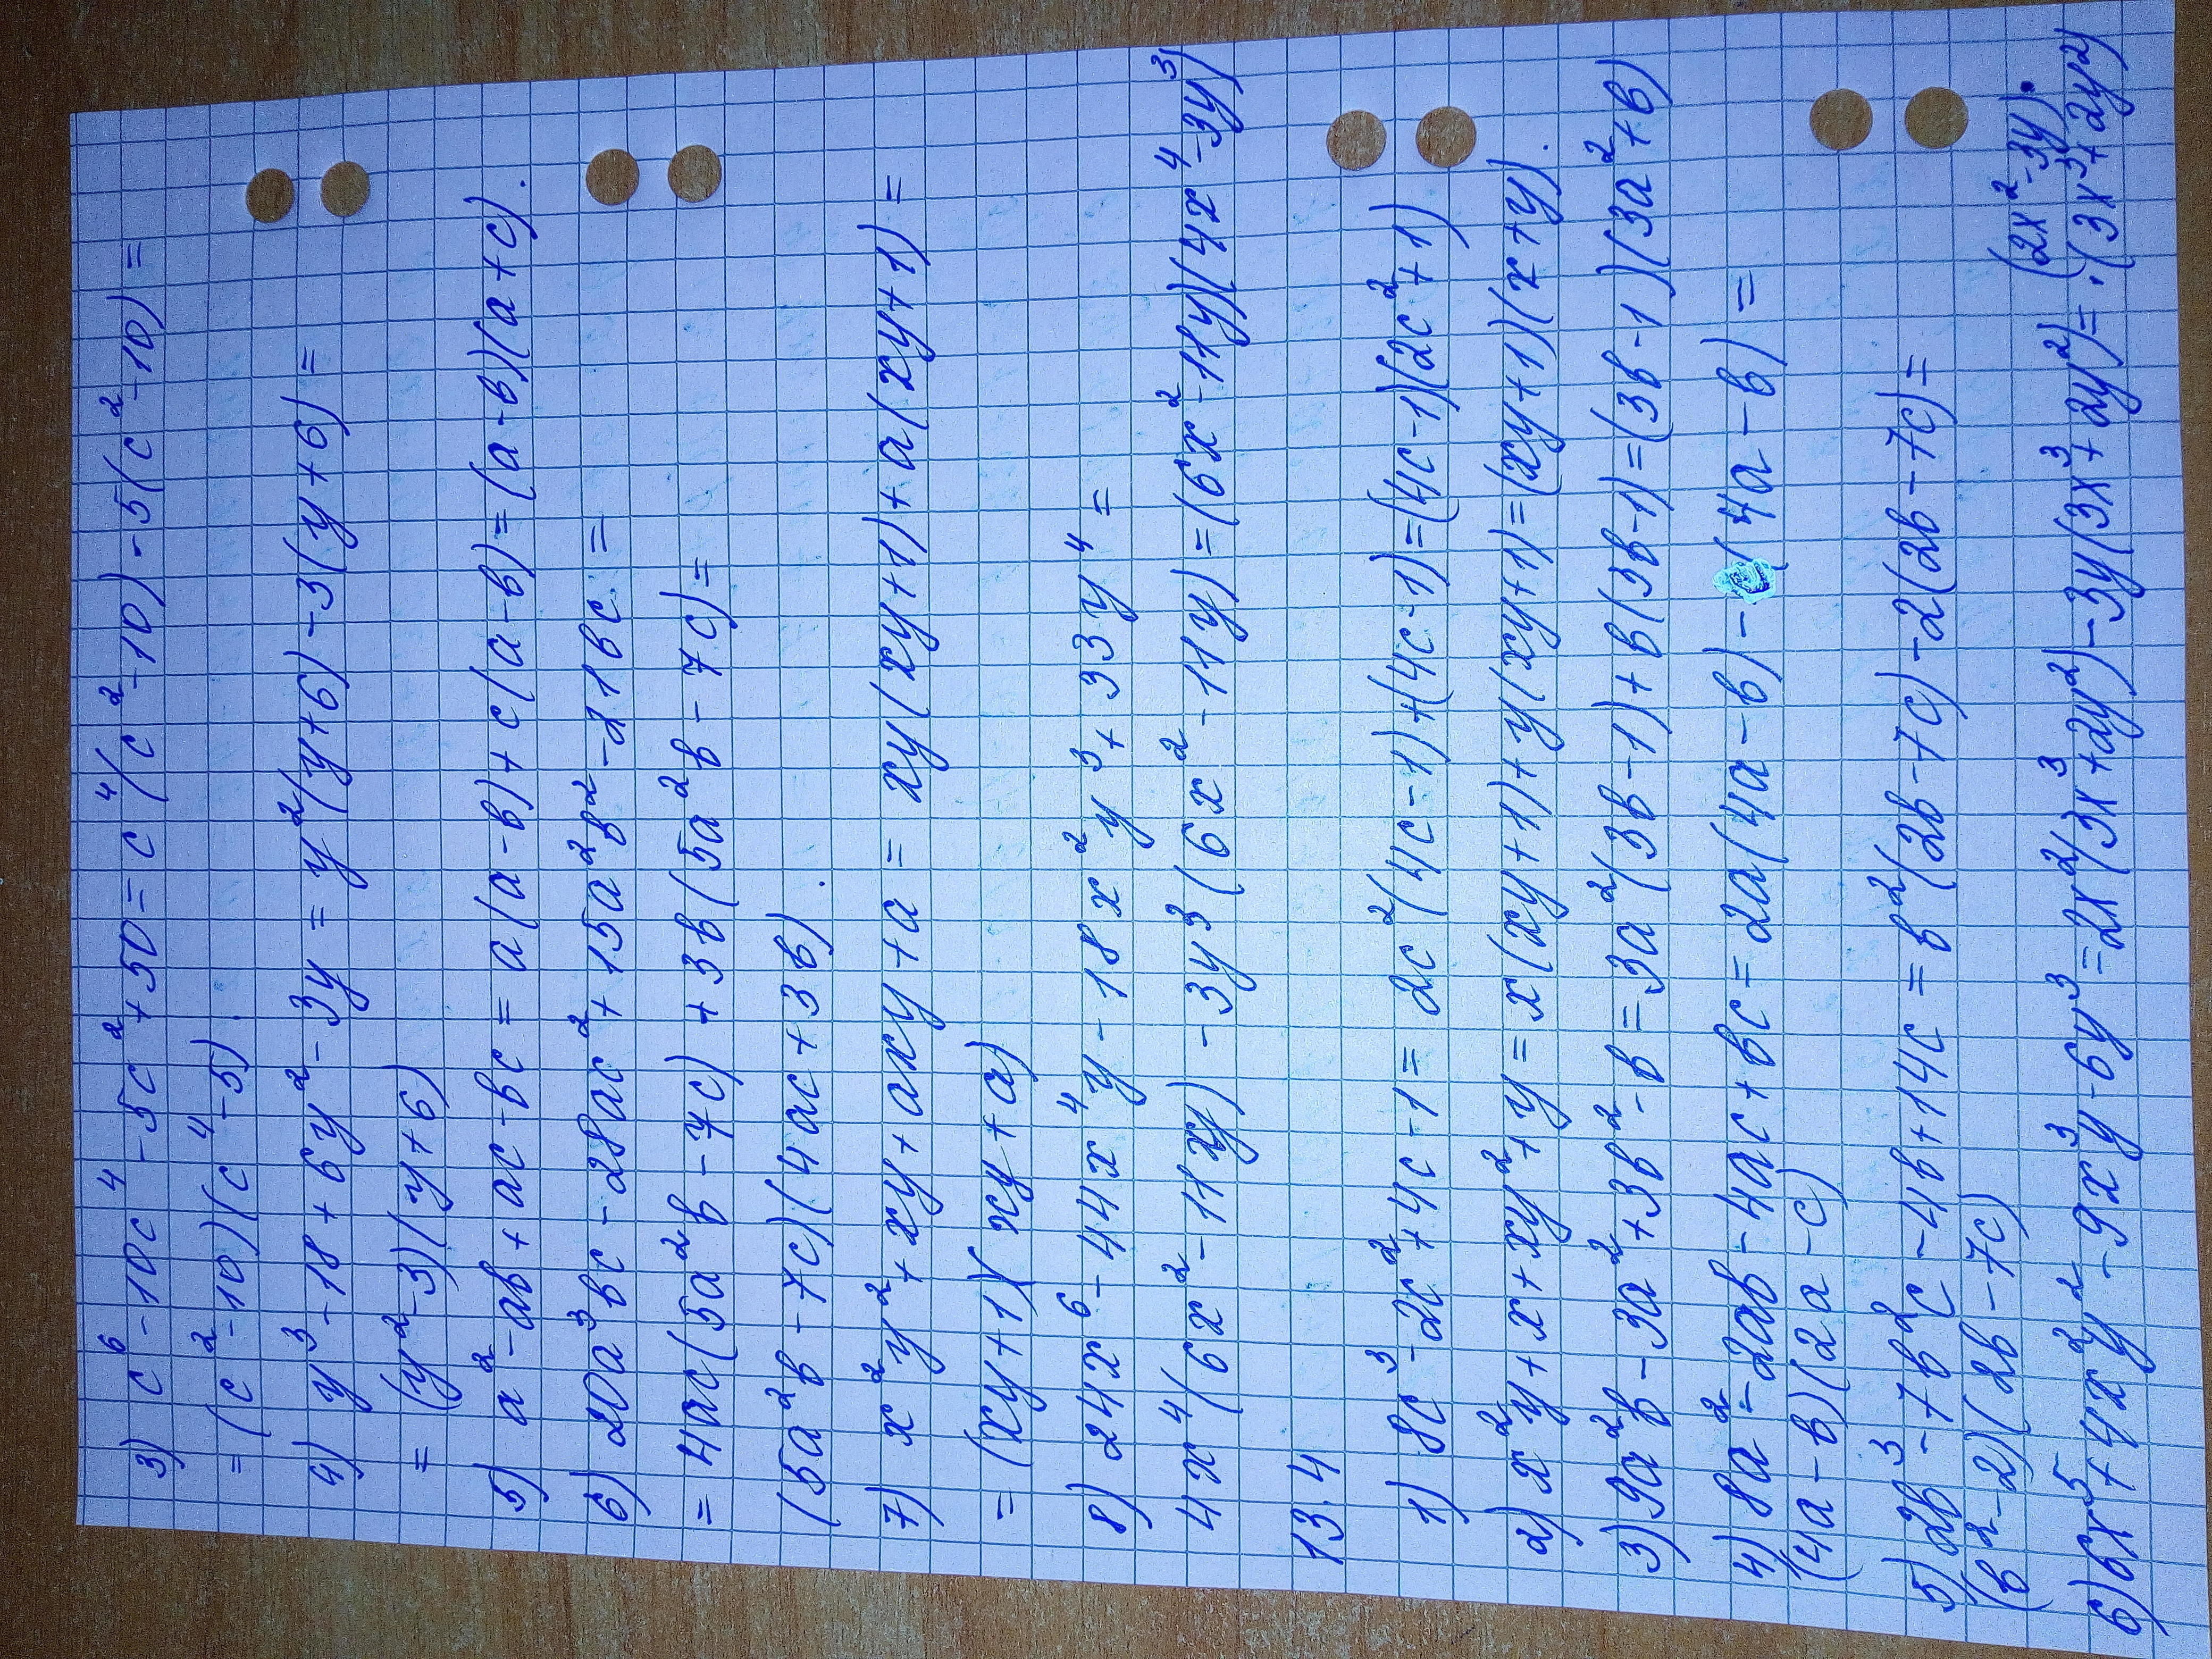 3) c⁶-10c⁴-5c²+50=c⁴(c²-10)-5(c²-10)=
=(c²-10)(c⁴-5).
4) y³-18+6y²-3y=y²(y+6)-3(y+6)=
=(y²-3)(y+6)
5) a²-ab+ac-bc=a(a-b)+c(a-b)=(a-b)(a+c).
6) 20a³bc-28ac²+15a²b²-21bc=
=4ac(5a²b-7c)+3b(5a²b-7c)=
(5a²b-7c)(4ac+3b).
7) x²y²+xy+axy+a=xy(xy+1)+a(xy+1)=
=(xy+1)(xy+a)
8) 24x⁶-44x⁴y-18x²y³+33y⁴=
4x⁴(6x²-11xy)-3y³(6x²-11y)=(6x²-11y)(4x⁴-3y³)
13.4
1) 8c³-2c²+4c-1=2c²(4c-1)+(4c-1)=(4c-1)(2c²+1)
2) x²y+x+xy²+y=x(xy+1)+y(xy+1)=(xy+1)(x+y).
3) 9a²b-3a²+3b²-b=3a²(3b-1)+b(3b-1)=(3b-1)(3a²+b)
4) 8a²-2ab-4ac+bc=2a(4a-b)-(4a-b)=
(4a-b)(2a-c)
5) 2b³-7b²c-4b+14c=b²(2b-7c)-2(2b-7c)=
(b²-2)(2b-7c)
6) 6x⁵+4x²y²-9x³y-6y³=2x²(3x³+2y²)-3y(3x³+2y²)=(2x²-3y)·
·(3x³+2y²)